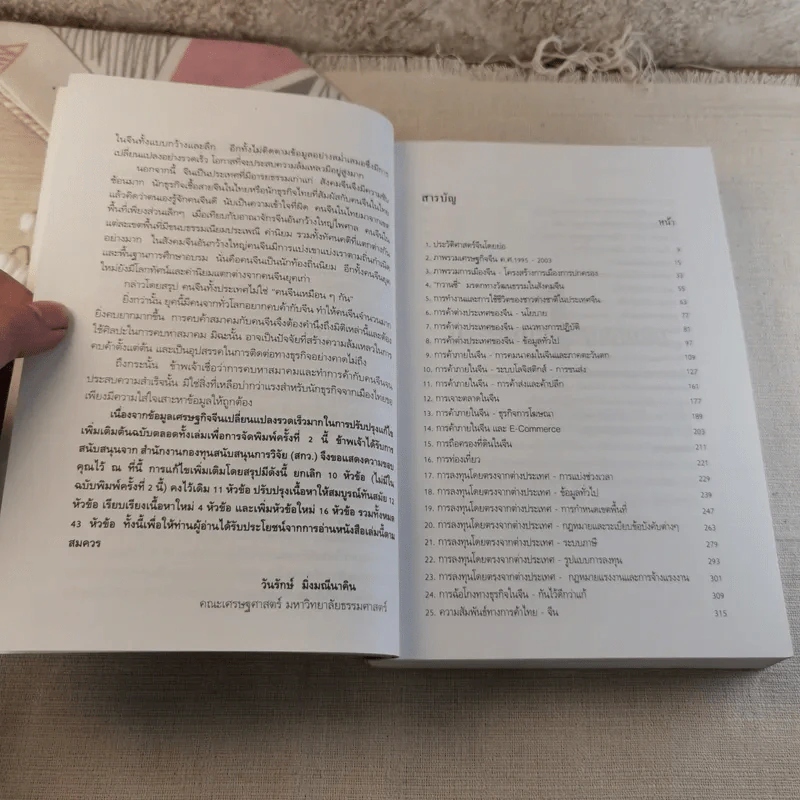 ในจีนทั้งแบบกว้างและลึก อีกทั้งไม่ติดตามข้อมูลอย่างสม่ำเสมอซึ่งมีการ
เปลี่ยนแปลงอย่างรวดเร็ว โอกาสที่จะประสบความล้มเหลวมีอยู่สูงมาก
นอกจากนี้ จีนเป็นประเทศที่มีอารยธรรมเก่าแก่ สังคมจีนจึงมีความซับ
ซ้อนมาก นักธุรกิจเชื้อสายจีนในไทยหรือนักธุรกิจไทยที่สัมผัสกับคนจีนในไทย
แล้วคิดว่าตนเองรู้จักคนจีนดี นับเป็นความเข้าใจที่ผิด คนจีนในไทยมาจากเขต
พื้นที่เพียงส่วนเล็กๆ เมื่อเทียบกับอาณาจักรจีนอันกว้างใหญ่ไพศาล คนจีนใน
แต่ละเขตพื้นที่มีขนบธรรมเนียมประเพณี ค่านิยม รวมทั้งทัศนคติที่แตกต่างกัน
อย่างมาก ในสังคมจีนอันกว้างใหญ่คนจีนมีการแบ่งเขาแบ่งเราตามถิ่นกำเนิด
และพื้นฐานการศึกษาอบรม นั่นคือคนจีนเป็นนักท้องถิ่นนิยม อีกทั้งคนจีนยุค
ใหม่ยังมีโลกทัศน์และค่านิยมแตกต่างจากคนจีนยุคเก่า
กล่าวโดยสรุป คนจีนทั้งประเทศไม่ใช่ "คนจีนเหมือน ๆ กัน"
ยิ่งกว่านั้น ยุคนี้มีคนจากทั่วโลกอยากคบค้ากับจีน ทำให้คนจีนจำนวนมาก
ยิ่งคบยากมากขึ้น การคบค้าสมาคมกับคนจีนจึงต้องคำนึงถึงมิติเหล่านี้และต้อง
ใช้ศิลปะในการคบหาสมาคม มิฉะนั้น อาจเป็นปัจจัยที่สร้างความล้มเหลวในการ
คบค้าตั้งแต่ต้น และเป็นอุปสรรคในการติดต่อทางธุรกิจอย่างคาดไม่ถึง
ถึงกระนั้น ข้าพเจ้าเชื่อว่าการคบหาสมาคมและทำการค้ากับคนจีนจน
ประสบความสำเร็จนั้น มิใช่สิ่งที่เหลือบ่ากว่าแรงสำหรับนักธุรกิจจากเมืองไทยขอ
เพียงมีความใส่ใจเสาะหาข้อมูลให้ถูกต้อง
เนื่องจากข้อมูลเศรษฐกิจจีนเปลี่ยนแปลงรวดเร็วมากในการปรับปรุงแก้ไข
เพิ่มเติมต้นฉบับตลอดทั้งเล่มเพื่อการจัดพิมพ์ครั้งที่ 2 นี้ ข้าพเจ้าได้รับการ
สนับสนุนจาก สำนักงานกองทุนสนับสนุนการวิจัย (สกว.) จึงขอแสดงความขอบ
คุณไว้ ณ ที่นี้ การแก้ไขเพิ่มเติมโดยสรุปมีดังนี้ ยกเลิก 10 หัวข้อ (ไม่มีใน
ฉบับพิมพ์ครั้งที่ 2 นี้) คงไว้เดิม 11 หัวข้อ ปรับปรุงเนื้อหาให้สมบูรณ์ทันสมัย 12
หัวข้อ เรียบเรียงเนื้อหาใหม่ 4 หัวข้อ และเพิ่มหัวข้อใหม่ 16 หัวข้อ รวมทั้งหมด
43 หัวข้อ ทั้งนี้เพื่อให้ท่านผู้อ่านได้รับประโยชน์จากการอ่านหนังสือเล่มนี้ตาม
สมควร
วันรักษ์ มิ่งมณีนาคิน
คณะเศรษฐศาสตร์ มหาวิทยาลัยธรรมศาสตร์
สารบัญ
หน้า
1. ประวัติศาสตร์จีนโดยย่อ 9
2. ภาพรวมเศรษฐกิจจีน ค.ศ.1995 - 2003 15
3. ภาพรวมการเมืองจีน - โครงสร้างการเมืองการปกครอง
4. "กวานซี่" มรดกทางวัฒนธรรมในสังคมจีน 55
5. การทำงานและการใช้ชีวิตของชาวต่างชาติในประเทศจีน 63
6. การค้าต่างประเทศของจีน - นโยบาย 77
7. การค้าต่างประเทศของจีน - แนวทางการปฏิบัติ 81
8. การค้าต่างประเทศของจีน - ข้อมูลทั่วไป 91
9. การค้าภายในจีน - การคมนาคมในจีนและภาคตะวันตก 109
10. การค้าภายในจีน - ระบบโลจิสติกส์ - การขนส่ง 127
11. การค้าภายในจีน - การค้าส่งและค้าปลีก 161
12. การเจาะตลาดในจีน 177
13. การค้าภายในจีน - ธุรกิจการโฆษณา 189
14. การค้าภายในจีน และ E-Commerce 203
15. การถือครองที่ดินในจีน 211
16. การท่องเที่ยว 221
17. การลงทุนโดยตรงจากต่างประเทศ - การแบ่งช่วงเวลา 229
18. การลงทุนโดยตรงจากต่างประเทศ - ข้อมูลทั่วไป 239
19. การลงทุนโดยตรงจากต่างประเทศ - การกำหนดเขตพื้นที่ 247
20. การลงทุนโดยตรงจากต่างประเทศ - กฎหมายและระเบียบข้อบังคับต่างๆ 263
21. การลงทุนโดยตรงจากต่างประเทศ - ระบบภาษี 279
22. การลงทุนโดยตรงจากต่างประเทศ - รูปแบบการลงทุน 293
23. การลงทุนโดยตรงจากต่างประเทศ - กฎหมายแรงงานและการจ้างแรงงาน 301
24. การฉ้อโกงทางธุรกิจในจีน - กันไว้ดีกว่าแก้ 309
25. ความสัมพันธ์ทางการค้าไทย - จีน 315